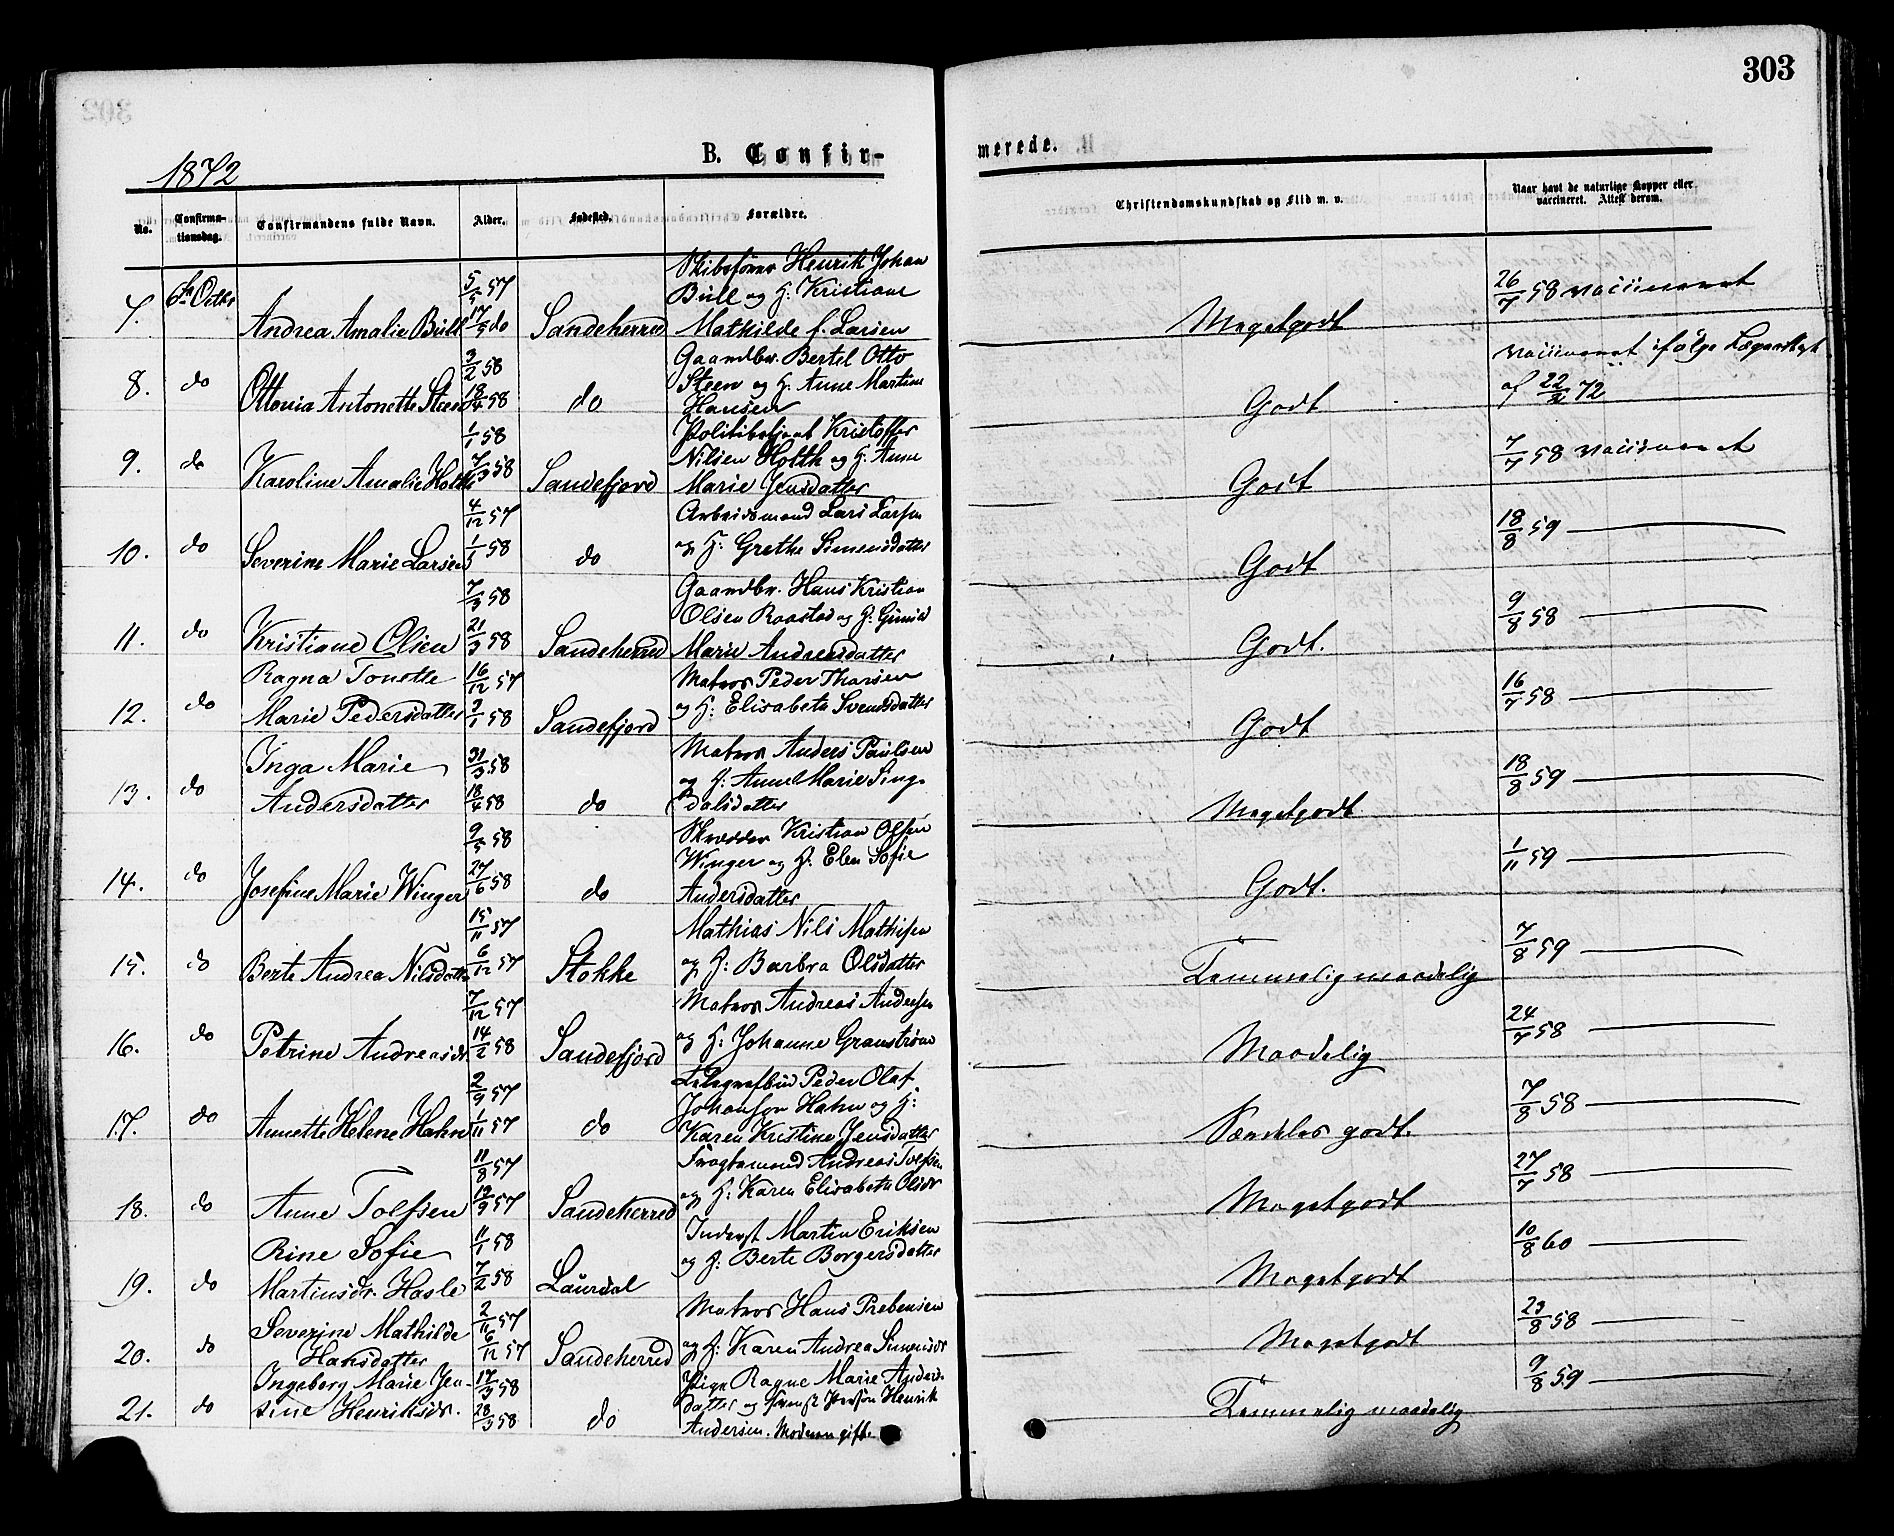 303
1872
B. Confir-
merede.
No.
Confirma-
tionsdag.
Confirmandens fulde Navn.
Alder.
Fødested.
Forældre.
Christendomskundskab og Flid m. v.
Naar havt de naturlige Kopper eller
vaccineret. Attest derom.
7. 6te Octbr Andrea Amalie Büll 5/5 57 17/5 do Sandeherred
Skibsfører Henrik Johan
Büll og H: Kristiane
Mathilde f. Larsen
Megetgodt 26/7 58 vaccineret
8. do Ottonia Antonette Steen 3/2 58 18/4 58 do
Gaardbr. Bertel Otto
Steen og H. Anne Martine
Hansen
Godt vaccineret ifølge Lægeattest
af 22/2 72
9. do Karoline Amalie Holth 1/1 58 7/3 58 Sandefjord
Politibetjent Kristoffer
Nilsen Holth og H. Anne
Marie Jensdatter
Godt 7/7 58 vaccineret
10. do Severine Marie Larsen 4/12 57 1/1 58 do
Arbeidsmand Lars Larsen
og H: Grethe Simensdatter
Godt 18/8 59 —
11. do Kristiane Olsen 7/3 58 21/3 58 Sandeherred
Gaardbr. Hans Kristian
Olsen Raastad og H: Gunild
Marie Andreasdatter
Godt. 9/8 58 —
12. do Ragna Tonette
Marie Pedersdatter 16/12 57 3/1 58 Sandefjord
Matros Peder Thorsen
og H: Elisabeth Svendsdatter
Godt 16/7 58 —
13. do Inga Marie
Andersdatter 31/3 58 18/4 58 do
Matros Anders Paulsen
og H: Anne Marie Ting-
dalsdatter
Megetgodt 18/8 59 —
14. do Josefine Marie Winger 9/5 58 27/6 58 do
Skrædder Kristian Olsen
Winger og H: Elen Sofie
Andersdatter
Godt. 1/11 59 —
15. do Berte Andrea Nilsdatter 15/11 57 6/12 57 Stokke
Mathias Nils Mathisen
og H: Barbra Olsdatter
Temmelig maadelig 7/8 59 —
16. do Petrine Andreasdr. 7/12 57 14/2 58 Sandefjord
Matros Andreas Andersen
og H: Johanne Granstrøm
Maadelig 24/7 58 —
17. do Annette Helene Hahn 2/9 57 1/11 57 do
Telegrafbud Peder Olaf
Johansen Hahn og H:
Karen Kristine Jensdatter
Særdeles godt. 7/8 58 —
18. do Anne Tolfsen 11/8 57 13/9 57 Sandeherred
Fragtemand Andreas Tolfsen
og H: Karen Elisabeth Olsdr
Megetgodt 27/7 58 —
19. do Rine Sofie
Martinsdr. Hasle 1/1 58 7/2 58 Laurdal
Inderst Martin Eriksen
og H: Berte Borgersdatter
Megetgodt 10/8 60 —
20. do Severine Mathilde
Hansdatter 2/11 57 6/12 57 Sandeherred
Matros Hans Prebensen
og H: Karen Andrea Simensdr
Megetgodt 23/8 58 —
21. do Ingeborg Marie Jen-
sine Henriksdr. 17/3 58 28/3 58 do
Pige Ragne Marie Anders-
datter og Henrik
Andersen. Moderen gift.
Temmelig maadelig 9/8 59 —